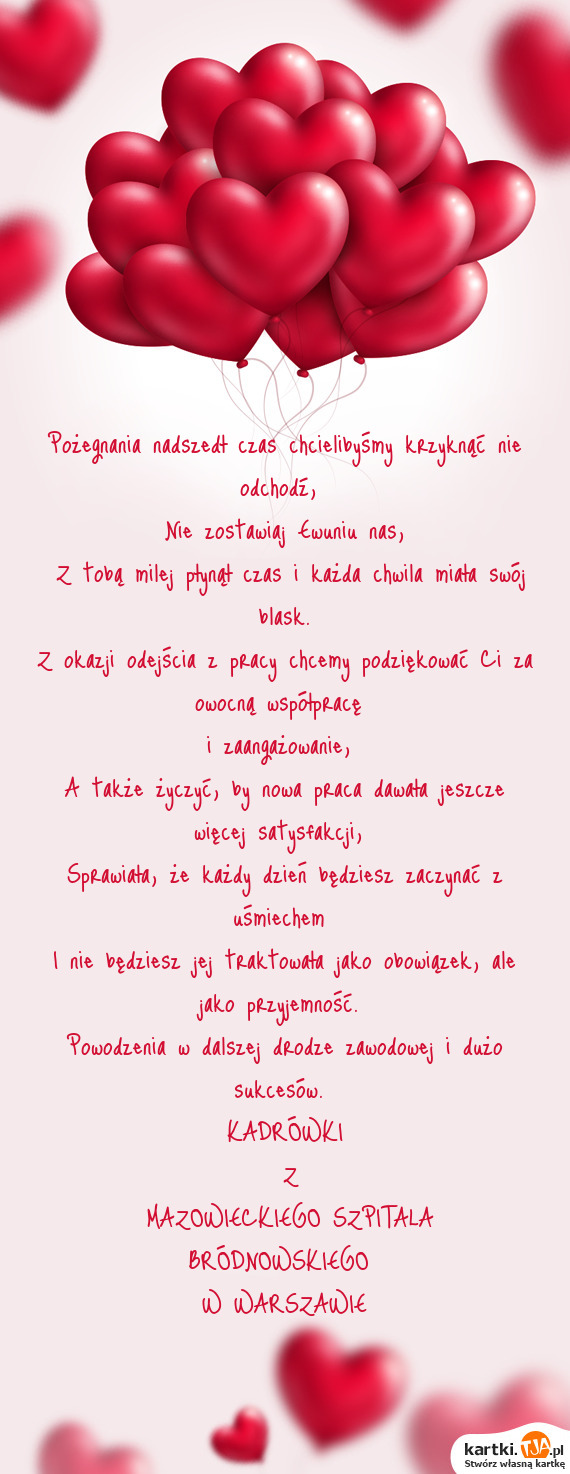 Pożegnania nadszedł czas chcielibyśmy krzyknąć nie
odchodź,
Nie zostawiaj Ewuniu nas,
Z tobą milej płynął czas i każda chwila miała swój
blask.
Z okazji odejścia z pracy chcemy podziękować Ci za
owocną współpracę
i zaangażowanie,
A także życzyć, by nowa praca dawała jeszcze
więcej satysfakcji,
Sprawiała, że każdy dzień będziesz zaczynać z
uśmiechem
I nie będziesz jej traktowała jako obowiązek, ale
jako przyjemność.
Powodzenia w dalszej drodze zawodowej i dużo
sukcesów.
KADRÓWKI
Z
MAZOWIECKIEGO SZPITALA
BRÓDNOWSKIEGO
W WARSZAWIE
kartki.TJA.pl
Stwórz własną kartkę